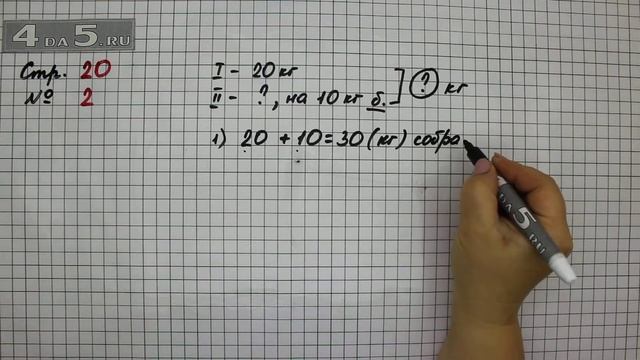 4DA5.RU
Стр. 20
№ 2
I - 20 кг
II - ?, на 10 кг б.
? кг
1) 20 + 10 = 30 (кг) собра
4DA5.RU